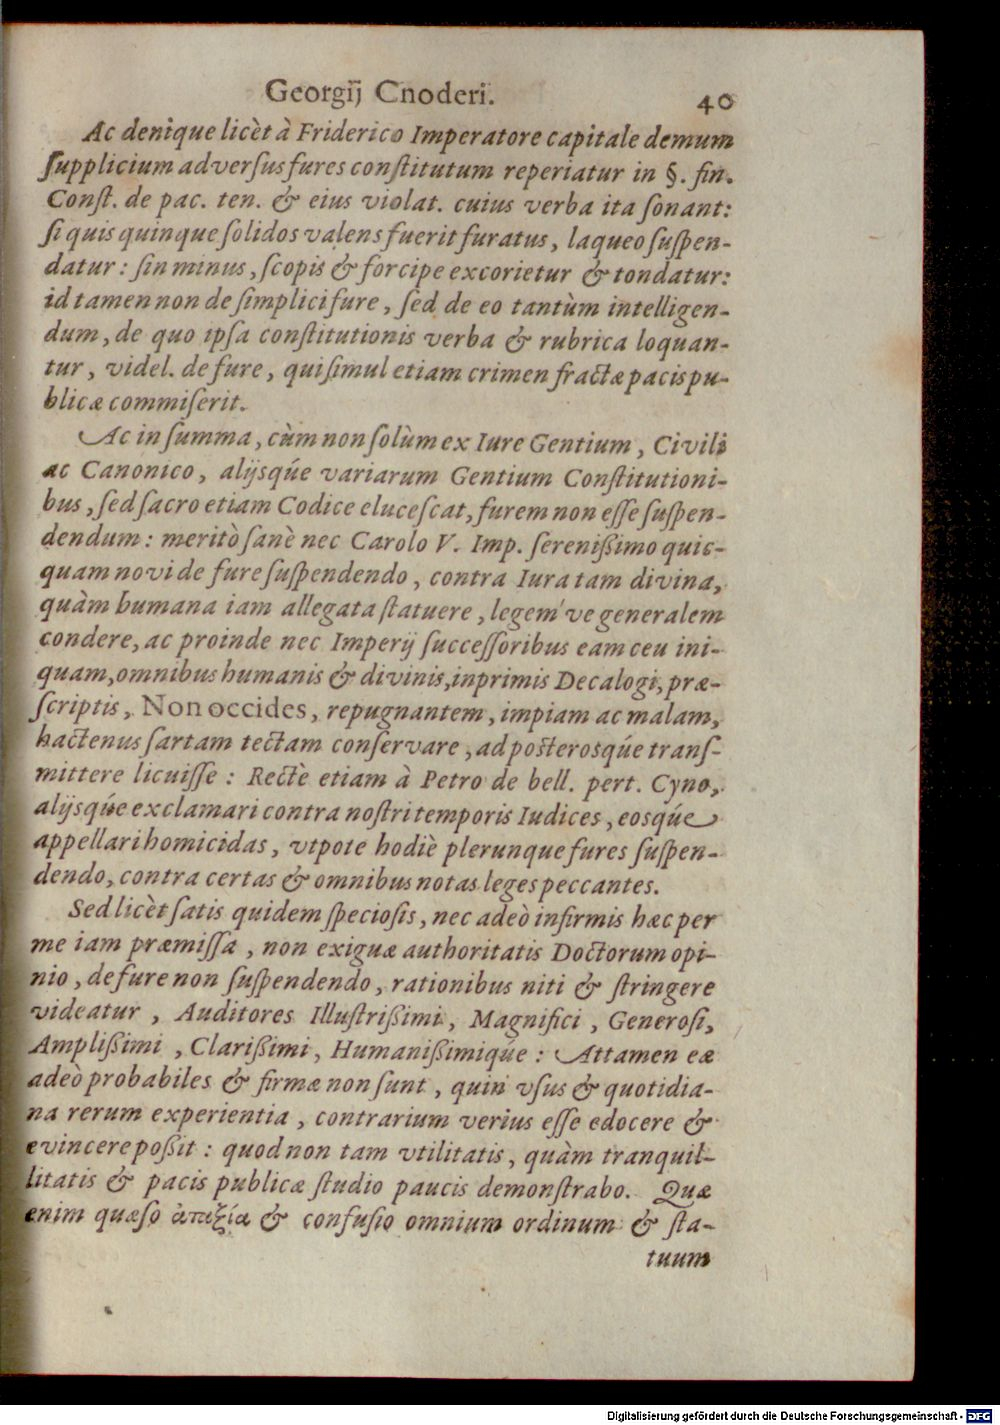 Georgij Cnoderi. 40
Ac denique licèt à Friderico Imperatore capitale demum
ſupplicium adverſus fures conſtitutum reperiatur in §. fin.
Conſt. de pac. ten. & eius violat. cuius verba ita ſonant:
ſi quis quinque ſolidos valens fuerit furatus, laqueo ſuſpen-
datur: ſin minus, ſcopis & forcipe excorietur & tondatur:
id tamen non de ſimplici fure, ſed de eo tantùm intelligen-
dum, de quo ipſa conſtitutionis verba & rubrica loquan-
tur, videl. de fure, qui ſimul etiam crimen fractæ pacis pu-
blicæ commiſerit.
Ac in ſumma, cùm non ſolùm ex Iure Gentium, Civili
ac Canonico, alijsq́ue variarum Gentium Conſtitutioni-
bus, ſed ſacro etiam Codice eluceſcat, furem non eſſe ſuſpen-
dendum: meritò ſanè nec Carolo V. Imp. ſereniſſimo quic-
quam novi de fure ſuſpendendo, contra Iura tam divina,
quàm humana iam allegata ſtatuere, legem've generalem
condere, ac proinde nec Imperij ſucceſſoribus eam ceu ini-
quam, omnibus humanis & divinis, inprimis Decalogi, præ-
ſcriptis, Non occides, repugnantem, impiam ac malam,
hactenus ſartam tectam conſervare, ad posterosq́ue tranſ-
mittere licuiſſe: Rectè etiam à Petro de bell. pert. Cyno,
alijsq́ue exclamari contra noſtri temporis Iudices, eosq́ue
appellari homicidas, vtpote hodiè plerunque fures ſuſpen-
dendo, contra certas & omnibus notas leges peccantes.
Sed licèt ſatis quidem ſpecioſis, nec adeò infirmis hæc per
me iam præmiſſa, non exiguæ authoritatis Doctorum opi-
nio, de fure non ſuſpendendo, rationibus niti & ſtringere
videatur, Auditores Illuſtrißimi, Magnifici, Generoſi,
Amplißimi, Clarißimi, Humanißimiq́ue: Attamen eæ
adeò probabiles & firmæ non ſunt, quin vſus & quotidia-
na rerum experientia, contrarium verius eſſe edocere &
evincere poßit: quod non tam vtilitatis, quàm tranquil-
litatis & pacis publicæ ſtudio paucis demonſtrabo. Quæ
enim quæſo ἀταξία & confuſio omnium ordinum & ſta-
tuum
Digitalisierung gefördert durch die Deutsche Forschungsgemeinschaft - DFG